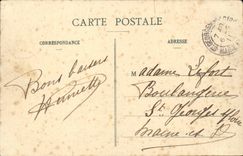 CARTE POSTALE
CORRESPONDANCE
ADRESSE
Bons baisers
Henriette
Madame Lefort
Boulangerie
St Georges s/Loire
Maine et L